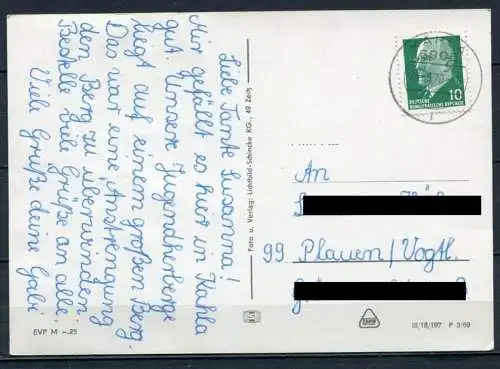 Liebe Tante Susanna!
Mir gefällt es hier in Kahla
gut. Unsere Jugendherberge
liegt auf einem großen Berg.
Das war eine Anstrengung
den Berg zu überwinden.
Bestelle viele Grüße an alle.
Viele Grüße deine Gabi
EVP M –.25
Foto u. Verlag: Lichtbild-Schincke KG., 48 Zeitz
10
DEUTSCHE
DEMOKRATISCHE REPUBLIK
An
99 Plauen/Vogtl.
III/18/197 P 3/69